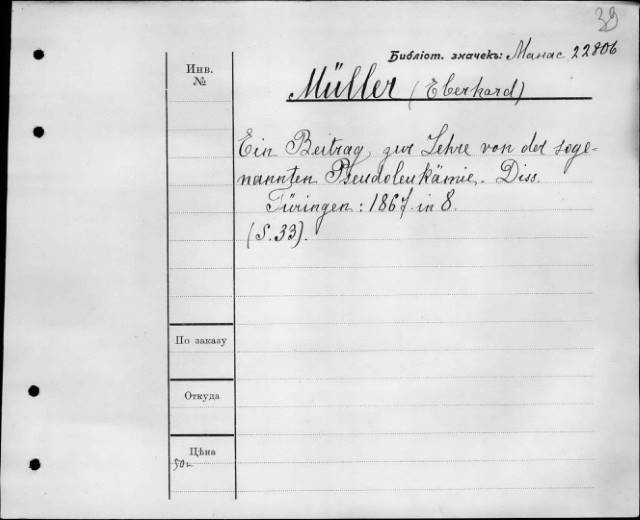 39
Библіот. значекъ: Манас 22806
Инв.
№
Müller (Eberhard)
Ein Beitrag zur Lehre von der soge-
nannten Pseudoleukämie. Diss.
Türingen: 1867 in 8.
(S. 33).
По заказу
Откуда
Цѣна
50